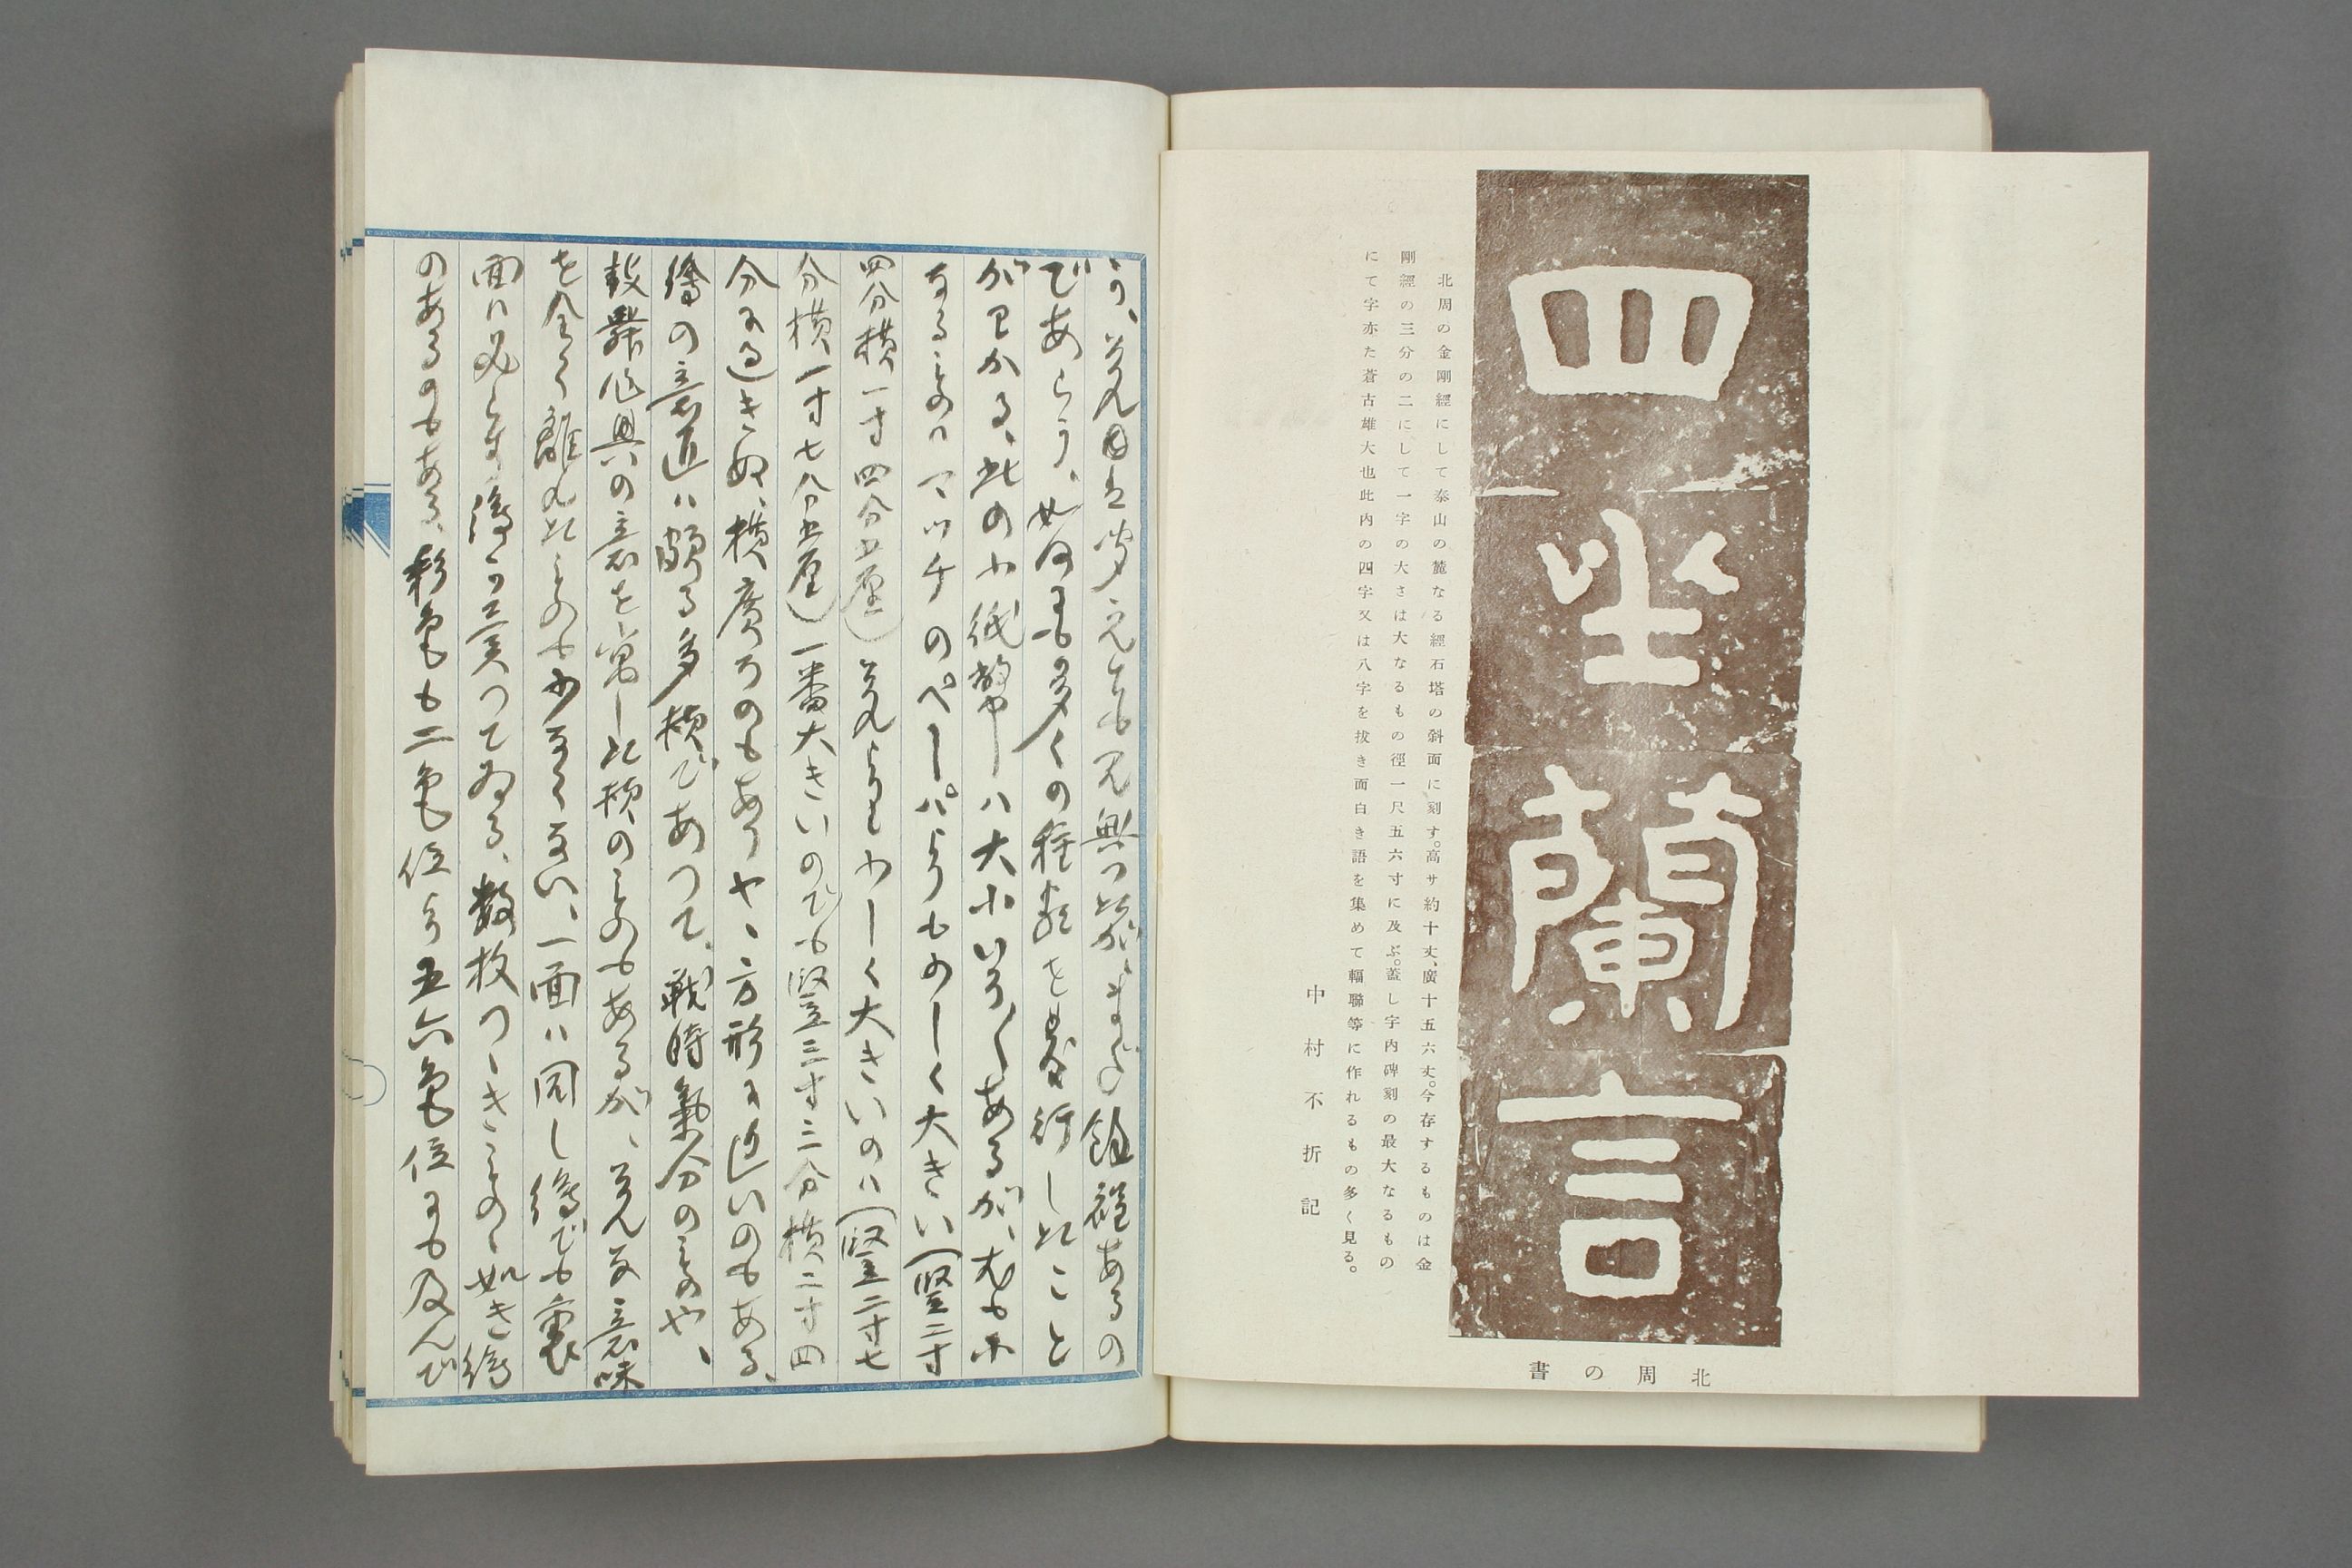 四坐蘭言
北周の書
北周の金剛經にして泰山の麓なる經石塔の斜面に刻す。高サ約十丈、廣十五六丈。今存するものは金
剛經の三分の二にして一字の大さは大なるもの徑一尺五六寸に及ぶ。蓋し字内碑刻の最大なるもの
にて字亦た蒼古雄大也此内の四字又は八字を拔き面白き語を集めて輻聯等に作れるもの多く見る。
中村不折記
う、まだ餘程あるの
であらう、如何にも多くの種類を發行したこと
がワかる、此の小紙幣ハ大小いろ〱あるが、尤も小
なるものハマッチのペーパよりも少しく大きい(竪二寸
四分横一寸四分五厘)夫よりも少しく大きいのハ(竪二寸七
分横一寸七分五厘)一番大きいのでも竪三寸三分横二寸四
分に過きぬ、横廣ろのもありやゝ方形に近いのもある、
繪の意匠ハ頗る多樣であつて、戰時氣分のものや、
鼓舞作興の意を寓した樣のものもあるが、そんな意味
を全く離れたものも少なくない、一面ハ同し繪でも裏
面ハ必らす繪が異つてゐる、數枚つゝきものゝ如き繪
のあるのもある、彩色も二色位より五六色位にも及んで